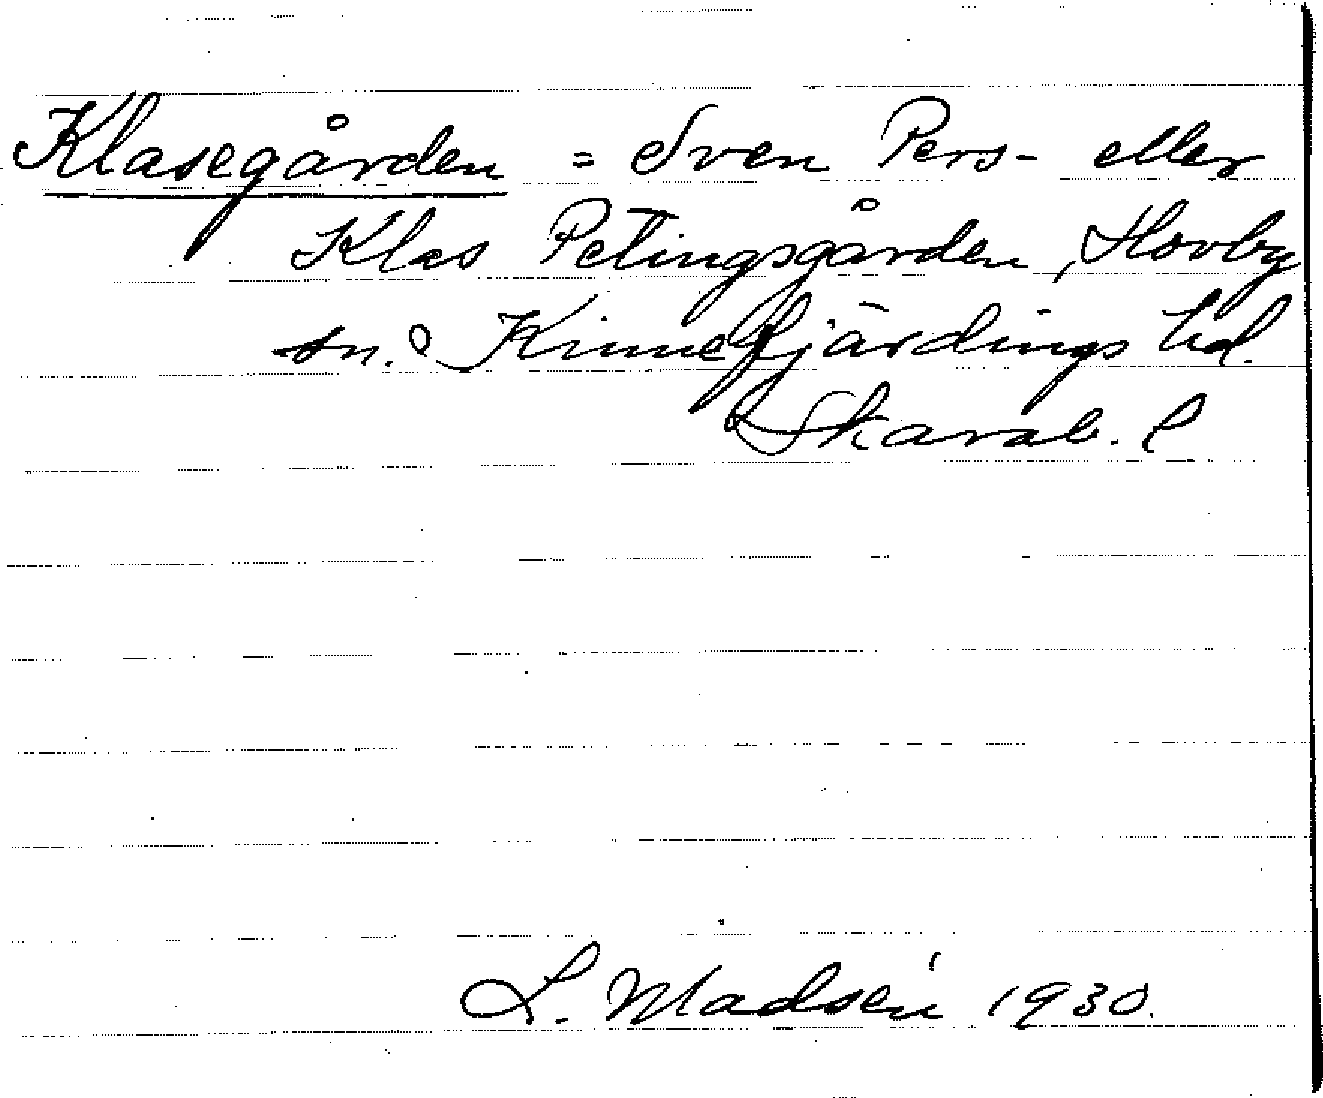 Klasegården = Sven Pers- eller
Klas Petingsgården, Hovby
sn. Kinnefjärdings hd.
Skarab. l
L. Madsén 1930.